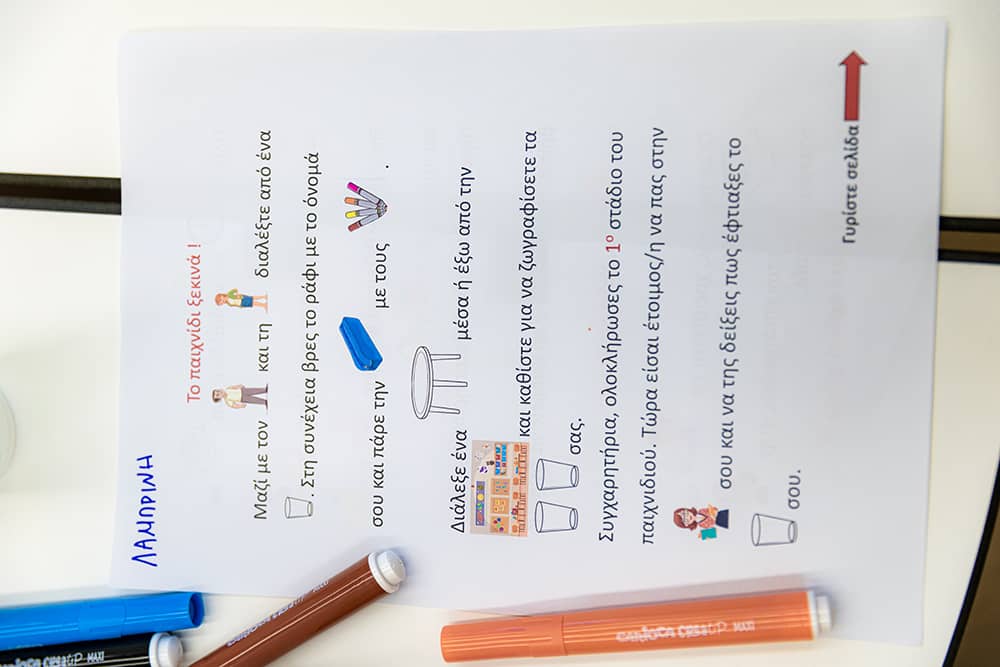 ΛΑΜΠΡΙΝΗ
Το παιχνίδι ξεκινά !
Μαζί με τον και τη διαλέξτε από ένα
. Στη συνέχεια βρες το ράφι με το όνομά
σου και πάρε την με τους .
Διάλεξε ένα μέσα ή έξω από την
και καθίστε για να ζωγραφίσετε τα
σας.
Συγχαρητήρια, ολοκλήρωσες το 1º στάδιο του
παιχνιδιού. Τώρα είσαι έτοιμος/η να πας στην
σου και να της δείξεις πως έφτιαξες το
σου.
Γυρίστε σελίδα
CARIOCA CREATIP MAXI